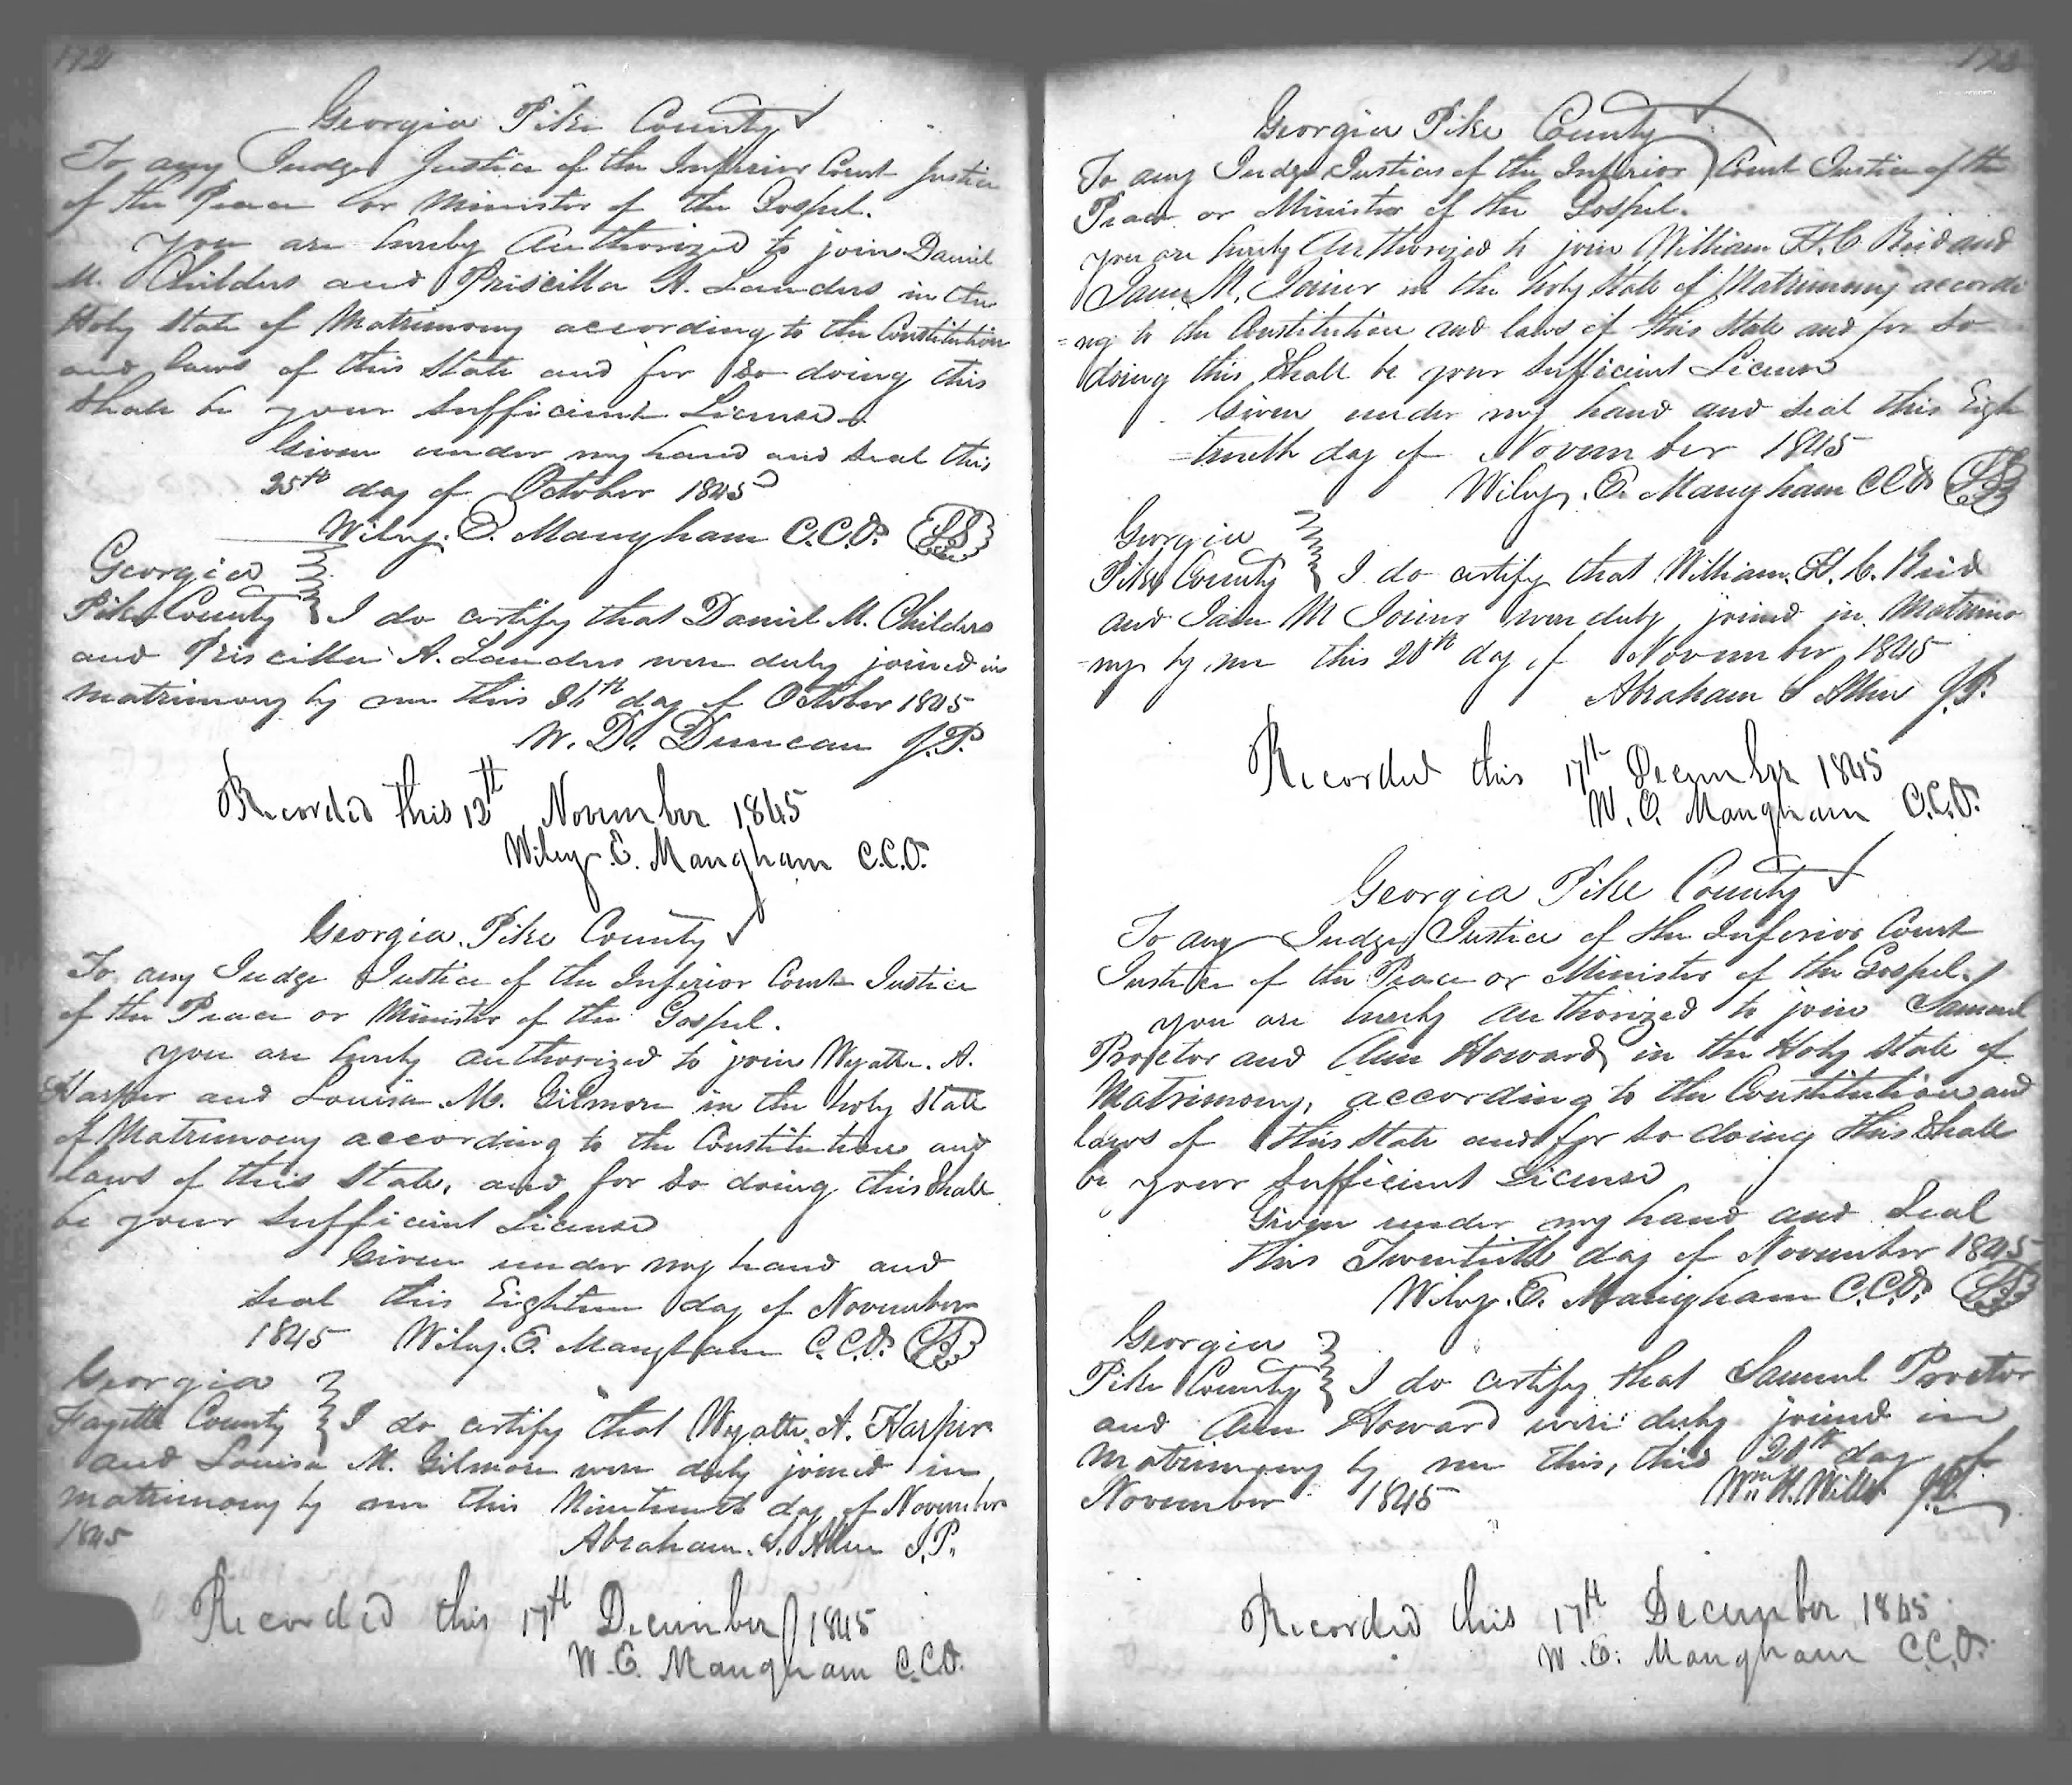 172
Georgia Pike County
To any Judge Justice of the Inferior Court Justice
of the Peace or Minister of the Gospel.
you are hereby Authorized to join Daniel
M. Childers and Priscilla A. Landers in the
Holy State of Matrimony according to the Constitution
and laws of this State and for So doing this
Shall be your Sufficient License
Given under my hand and Seal this
25th day of October 1845
Wiley. E. Mangham C.C.O. LS
Georgia
Pike County I do certify that Daniel M. Childers
and Priscilla A. Landers were duly joined in
matrimony by me this day of October 1845
W. D. Duncan J.P.
Recorded this November 1845
Wiley. E. Mangham C.C.O.
Georgia. Pike County
To any Judge Justice of the Inferior Court Justice
of the Peace or Minister of the Gospel.
you are hereby authorized to join Wyatte. A.
Harper and Louisa. M. Gilmore in the holy State
of Matrimony according to the Constitution and
laws of this State, and for So doing this Shall
be your Sufficient License
Given under my hand and
Seal this Eighteen day of November
1845 Wiley. E. Mangham C.C.O. LS
Georgia
Fayette County I do certify that Wyatte. A. Harper
and Louisa M. Gilmore were duly joined in
matrimony by me this Nineteenth day of November
1845 Abraham. S. Allen J.P.
Recorded this 17th December 1845
W. E. Mangham C.C.O.
173
Georgia Pike County
To any Judge Justices of the Inferior Court Justice of the
Peace or Minister of the Gospel.
you are hereby Authorized to join William H. C. Reid and
Jane M. Joiner in the holy State of Matrimony accordi
=ng to the Constitution and laws of this State and for So
doing this Shall be your Sufficient License
Given under my hand and Seal this Eigh
=teenth day of November 1845
Wiley. E. Mangham CCO LS
Georgia
Pike County I do certify that William. H. C. Reid
and Jane M Joiner were duly joined in Matrimo
=ny by me this 20th day of November 1845
Abraham S Allen J.P.
Recorded this 17th December 1845
W. E. Mangham C.C.O.
Georgia Pike County
To any Judge Justice of the Inferior Court
Justice of the Peace or Minister of the Gospel.
you are hereby authorized to join Samuel
Proctor and Ann Howard in the Holy State of
Matrimony, according to the Constitution and
laws of this State and for So doing this Shall
be your Sufficient License
Given under my hand and Seal
this Twentieth day of November 1845
Wiley. E. Mangham C.C.O. LS
Georgia
Pike County I do certify that Samuel Proctor
and Ann Howard were duly joined in
Matrimony by me this, this 20th day of
November 1845 Wm. H. Wills J.P.
Recorded this 17th December 1845
W. E. Mangham C.C.O.